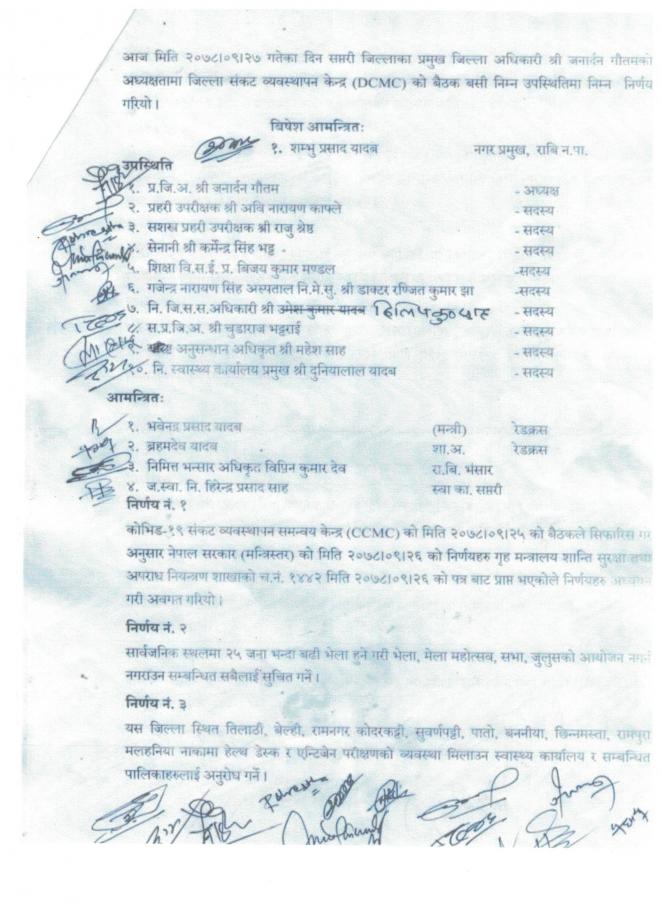 आज मिति २०७८।०९।२७ गतेका दिन सप्तरी जिल्लाका प्रमुख जिल्ला अधिकारी श्री जनार्दन गौतमको
अध्यक्षतामा जिल्ला संकट व्यवस्थापन केन्द्र (DCMC) को बैठक बसी निम्न उपस्थितिमा निम्न निर्णय
गरियो ।
बिषेश आमन्त्रितः
१. शम्भु प्रसाद यादब नगर प्रमुख, राबि न.पा.
उपस्थिति
१. प्र.जि.अ. श्री जनार्दन गौतम - अध्यक्ष
२. प्रहरी उपरीक्षक श्री अवि नारायण काफ्ले - सदस्य
३. सशस्त्र प्रहरी उपरीक्षक श्री राजु श्रेष्ठ - सदस्य
४. सेनानी श्री कर्मेन्द्र सिंह भट्ट - - सदस्य
५. शिक्षा वि.स.ई. प्र. बिजय कुमार मण्डल -सदस्य
६. गजेन्द्र नारायण सिंह अस्पताल नि.मे.सु. श्री डाक्टर रण्जित कुमार झा -सदस्य
७. नि. जि.स.स.अधिकारी श्री उमेश कुमार यादब - सदस्य
८. स.प्र.जि.अ. श्री चुडाराज भट्टराई - सदस्य
९. अनुसन्धान अधिकृत श्री महेश साह - सदस्य
१०. नि. स्वास्थ्य कार्यालय प्रमुख श्री दुनियालाल यादब - सदस्य
आमन्त्रितः
१. भवेनद्र प्रसाद यादब (मन्त्री) रेडक्रस
२. ब्रहमदेव यादब शा.अ. रेडक्रस
३. निमित्त भन्सार अधिकृत विप्रिन कुमार देव रा.बि. भंसार
४. ज.स्वा. नि. हिरेन्द्र प्रसाद साह स्वा का. सप्तरी
निर्णय नं. १
कोभिड-१९ संकट व्यवस्थापन समन्वय केन्द्र (CCMC) को मिति २०७८।०९।२५ को बैठकले सिफारिस गरे
अनुसार नेपाल सरकार (मन्त्रिस्तर) को मिति २०७८।०९।२६ को निर्णयहरु गृह मन्त्रालय शान्ति सुरक्षा तथा
अपराध नियन्त्रण शाखाको च.नं. १४४२ मिति २०७८।०९।२६ को पत्र बाट प्राप्त भएकोले निर्णयहरु अध्ययन
गरी अवगत गरियो ।
निर्णय नं. २
सार्वजनिक स्थलमा २५ जना भन्दा बढी भेला हुने गरी भेला, मेला महोत्सव, सभा, जुलुसको आयोजन नगर्न
नगराउन सम्बन्धित सबैलाई सुचित गर्ने ।
निर्णय नं. ३
यस जिल्ला स्थित तिलाठी, बेल्ही, रामनगर कोदरकट्टी, सुवर्णपट्टी, पातो, बननीया, छिन्नमस्ता, रामपुरा
मलहनिया नाकामा हेल्थ डेस्क र एन्टिजेन परीक्षणको व्यवस्था मिलाउन स्वास्थ्य कार्यालय र सम्बन्धित
पालिकाहरुलाई अनुरोध गर्ने ।